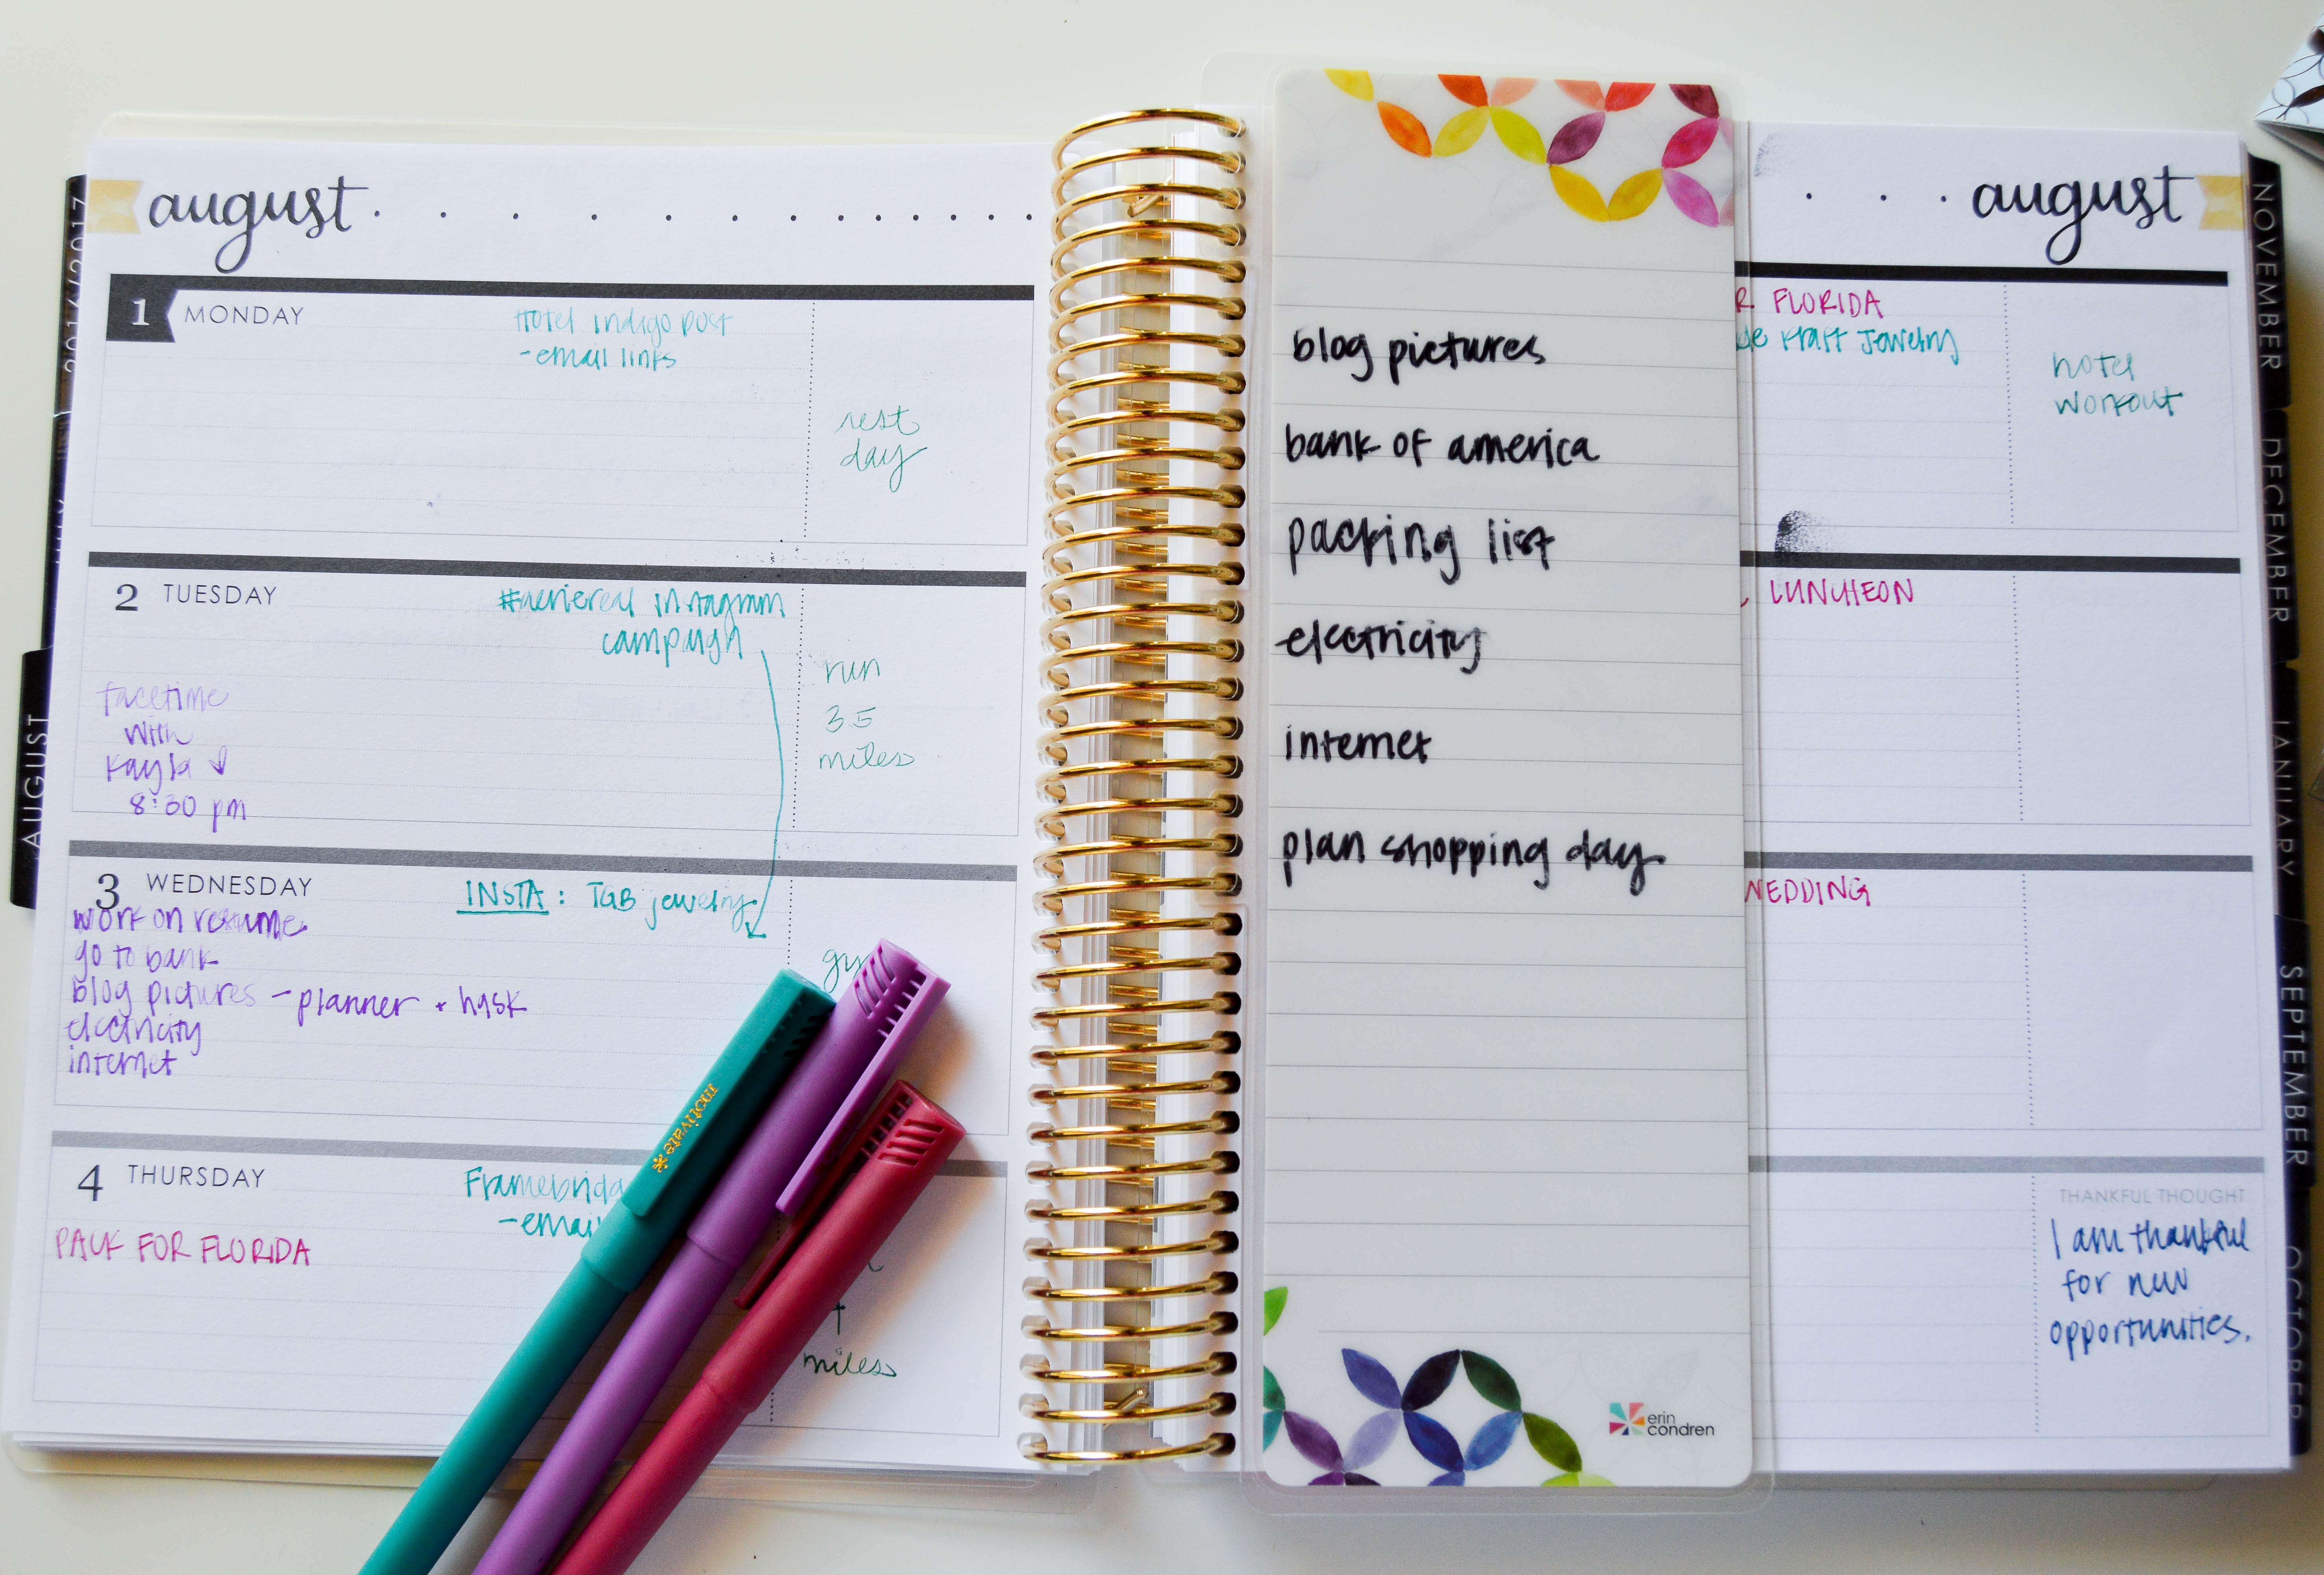 2016/2017
AUGUST
august
1 MONDAY
Hotel Indigo Post
- email links
rest
day
2 TUESDAY
#aeriereal instagram
campaign
facetime
with
Kayla
8:30 pm
run
3.5
miles
3 WEDNESDAY
INSTA: TGB jewelry
work on resume
go to bank
blog pictures - planner + hysk
electricity
internet
4 THURSDAY
- email
PACK FOR FLORIDA
miles
motivate*
blog pictures
bank of america
packing list
electricity
internet
plan shopping day
erin
condren
august
FLORIDA
Kraft Jewelry
hotel
workout
LUNCHEON
WEDDING
THANKFUL THOUGHT
I am thankful
for new
opportunities.
NOVEMBER
DECEMBER
JANUARY
SEPTEMBER
OCTOBER